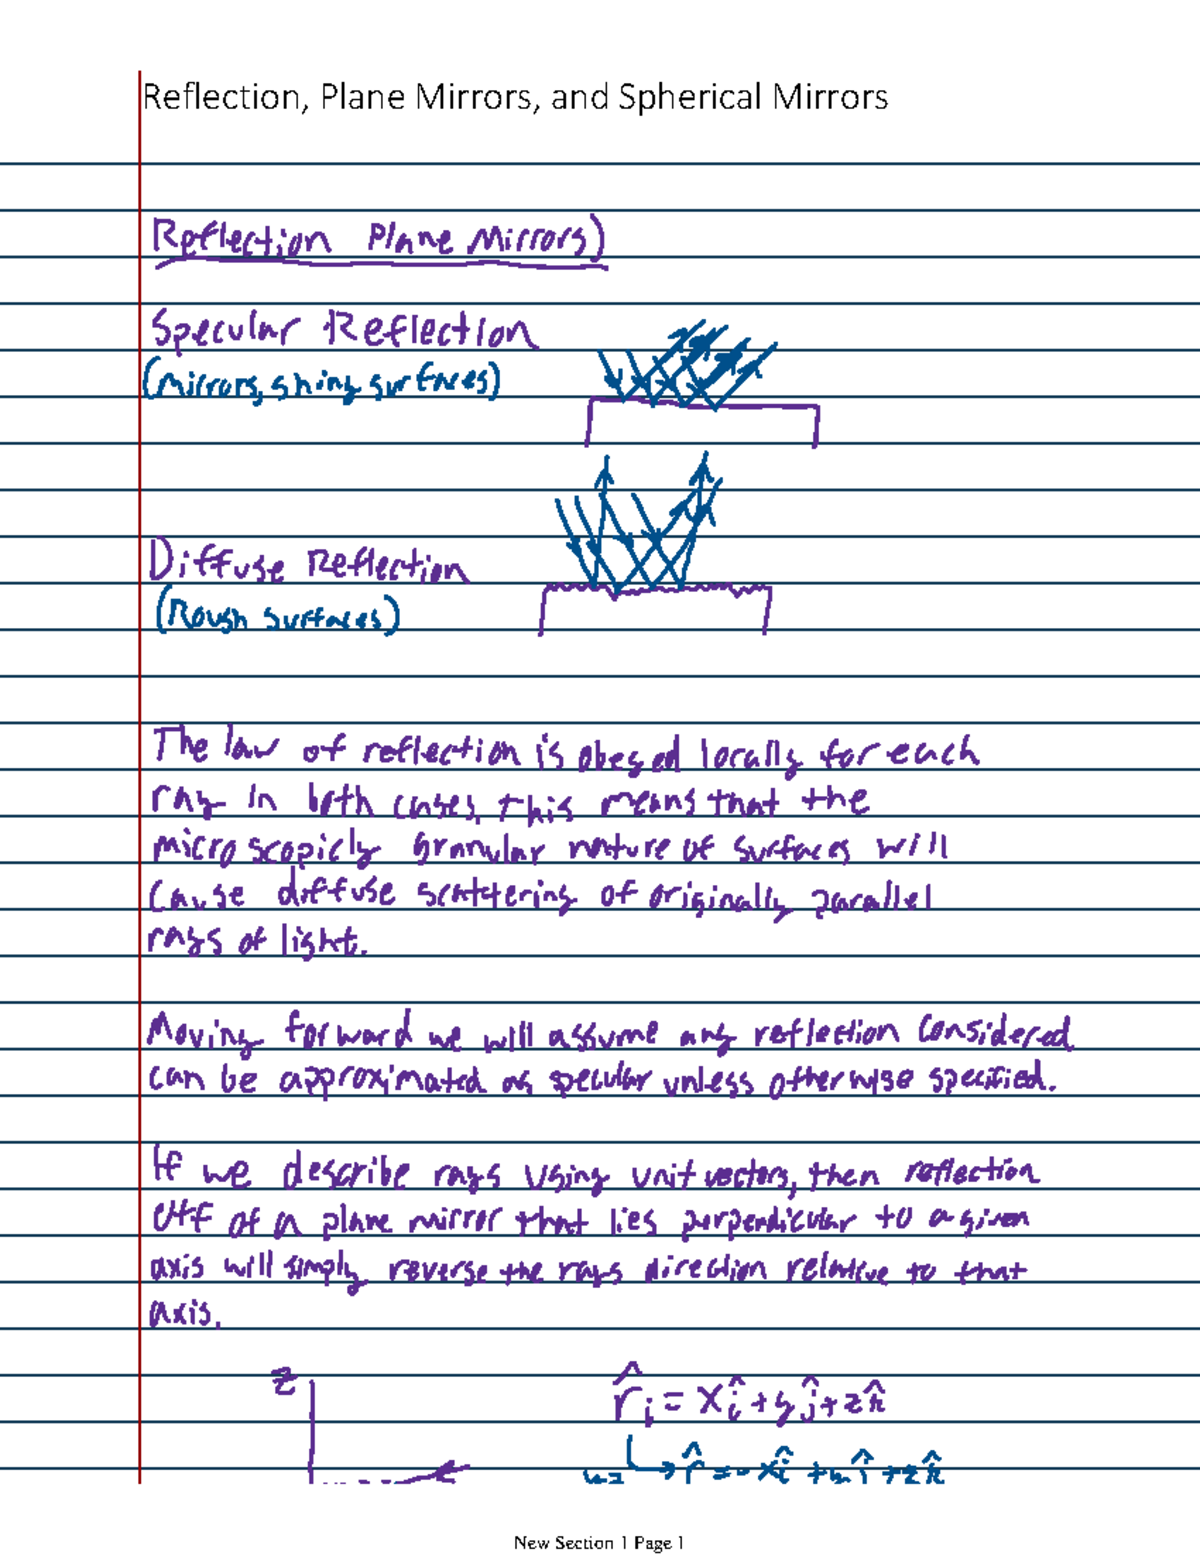 Reflection, Plane Mirrors, and Spherical Mirrors
Reflection Plane Mirrors)
Specular Reflection
(Mirrors, shiny surfaces)
Diffuse Reflection
(Rough surfaces)
The law of reflection is obeyed locally for each
ray in both cases, this means that the
microscopicly granular nature of surfaces will
cause diffuse scattering of originally parallel
rays of light.
Moving forward we will assume any reflection considered
can be approximated as specular unless otherwise specified.
If we describe rays using unit vectors, then reflection
off of a plane mirror that lies perpendicular to a given
axis will simply reverse the rays direction relative to that
axis.
z
r̂i = xî + yĵ + zk̂
r̂ = -xî + yĵ + zk̂
New Section 1 Page 1